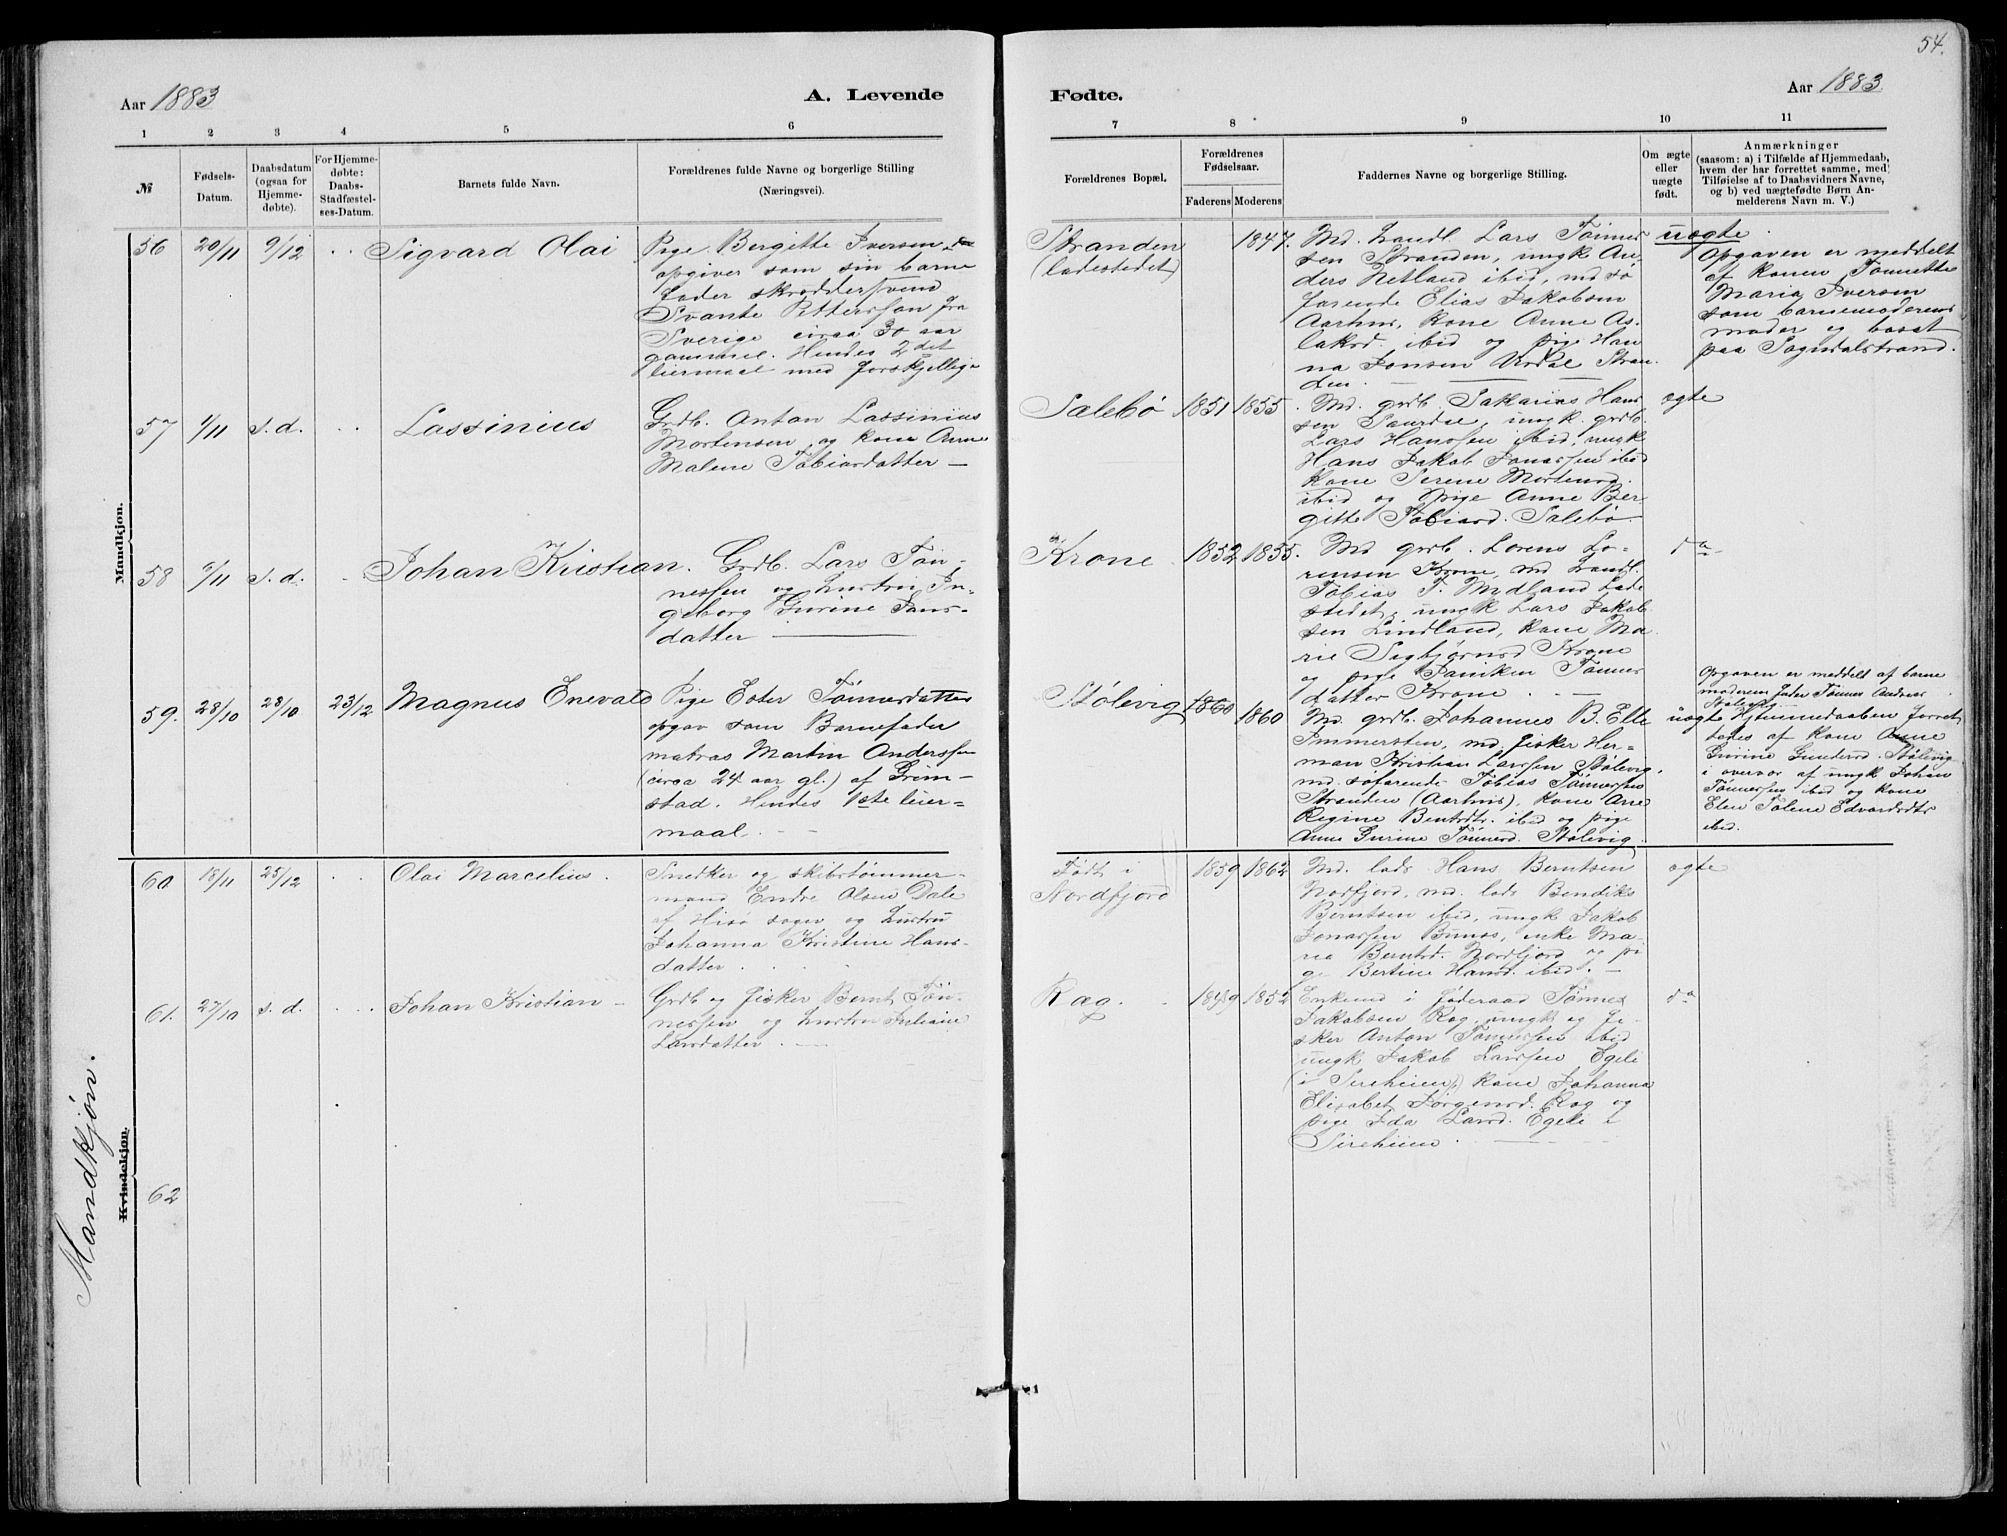 54.
Aar 1883
A. Levende
Fødte.
Aar 1883.
1 2 3 4 5 6
7 8 9 10 11
№
Fødsels-
Datum.
Daabsdatum
(ogsaa for
Hjemme-
døbte).
For Hjemme-
døbte:
Daabs-
Stadfæstel-
ses-Datum.
Barnets fulde Navn.
Forældrenes fulde Navne og borgerlige Stilling
(Næringsvei).
Forældrenes Bopæl.
Forældrenes
Fødselsaar.
Faderens Moderens
Faddernes Navne og borgerlige Stilling.
Om ægte
eller
uægte
født.
Anmærkninger
(saasom: a) i Tilfælde af Hjemmedaab,
hvem der har forrettet samme, med
Tilføielse af to Daabsvidners Navne,
og b) ved uægtefødte Børn An-
melderens Navn m. V.)
Mandkjøn.
56 20/11 9/12 . . Sigvard Olai
Pige Bergitte Iversen
opgiver som sin barne
fader skræddersvend
Svante Pettersson fra
Sverige circa 30 aar
gammel. Hendes 2det
leiermaal med forskjellige
Stranden
(ladestedet)
1847.
Md. handl. Lars Tønnes
sen Stranden, ungk An-
ders Netland ibid, md sø
farende Elias Jakobsen
Aarhus, kone Anne As-
laksd. ibid og pige Han
na Jonsen Urdal Stran
den.
uægte.
Opgaven er meddelt
af konen Tønnette
Maria Iversen
som barnemoderens
moder og bosat
paa Sogndalstrand.
57 1/11 s. d. . . Lassinius
Grdb. Anton Lassinius
Mortensen og kone Anne
Malene Tobiasdatter —
Salebø 1851 1855
Md. grdb. Sakarias Han
sen, ungk. grdb.
Lars Hanssen ibid, ungk
Hans Jakob Jonassen ibid
kone Serene Mortensd.
ibid og pige Anne Ber
gitte Tobiasd. Salebø.
ægte
58 9/11 s. d. . Johan Kristian.
Grdb. Lars Tøn-
nessen og hustru In-
geborg Gurine Jans-
datter —
Krone 1852 1855.
Md grdb. Lorens Lo-
rensen Krone, md handl.
Tobias T. Midland Lade
stedet, ungk Lars Jakob
sen Lindland, kone Ma
rie Sigbjørnsd Krone
og pige Taniken Tønnes
datter Krone. —
do
59. 28/10 28/10 23/12 Magnus Enevald
Pige Ester Tønnesdatter
opgav som Barnefader
matros Martin Anderssen
(circa 24 aar gl.) af Grim-
stad. Hendes 1ste leier-
maal.
Stølevig 1860 1860
Md. grdb. Johannes B. Elle
Immerstein, md. fisker Her-
man Kristian Larssen Stølevig,
md. søfarende Tobias Tønnessen
Stranden (Aarhus), kone Ane
Regine Bentsdtr. ibid og pige
Anne Gurine Tønnesd. Stølevig.
uægte
Opgaven er meddelt af barne
moderen Tønnes
Stølevig
Hjemmedaaben forret
tedes af kone Anne
Gurine Gundersd. Stølevig
i overvær af ungk Johan
Tønnessen ibid og kone
Elen Tolene Edvardsdtr
ibid.
Mandkjøn.
Kvindekjøn.
60. 18/11 25/12 . . Olai Marcelius.
Snedker og skibstømmer-
mand Endre Olsen Dale
af Hisø sogn og hustru
Johanna Kristine Hans-
datter.
Født i
Nordfjord
1859 1862
Md. lods Hans Berntsen
Nordfjord, md. lods Bendiks
Berntsen ibid, ungk Jakob
Jonassen, enke Ma-
ria Berntsd. Nordfjord og pi
ge Bertine Hansd. ibid. —
ægte
61. 27/10 s. d. . . . Johan Kristian —
Grdb og fisker Bernt Tøn-
nessen og hustru Juliane
Larsdatter.
Ræg. 1849 1852
Enkemd i føderaad Tønnes
Jakobsen Ræg, ungk og fi-
sker Anton Tønnessen ibid
ungk Jakob Larssen Egeli
(i Sireheien) kone Johanna
Elisabet Jørgensd. Ræg og
pige Ida Larsd. Egeli i
Sireheien.
do
62